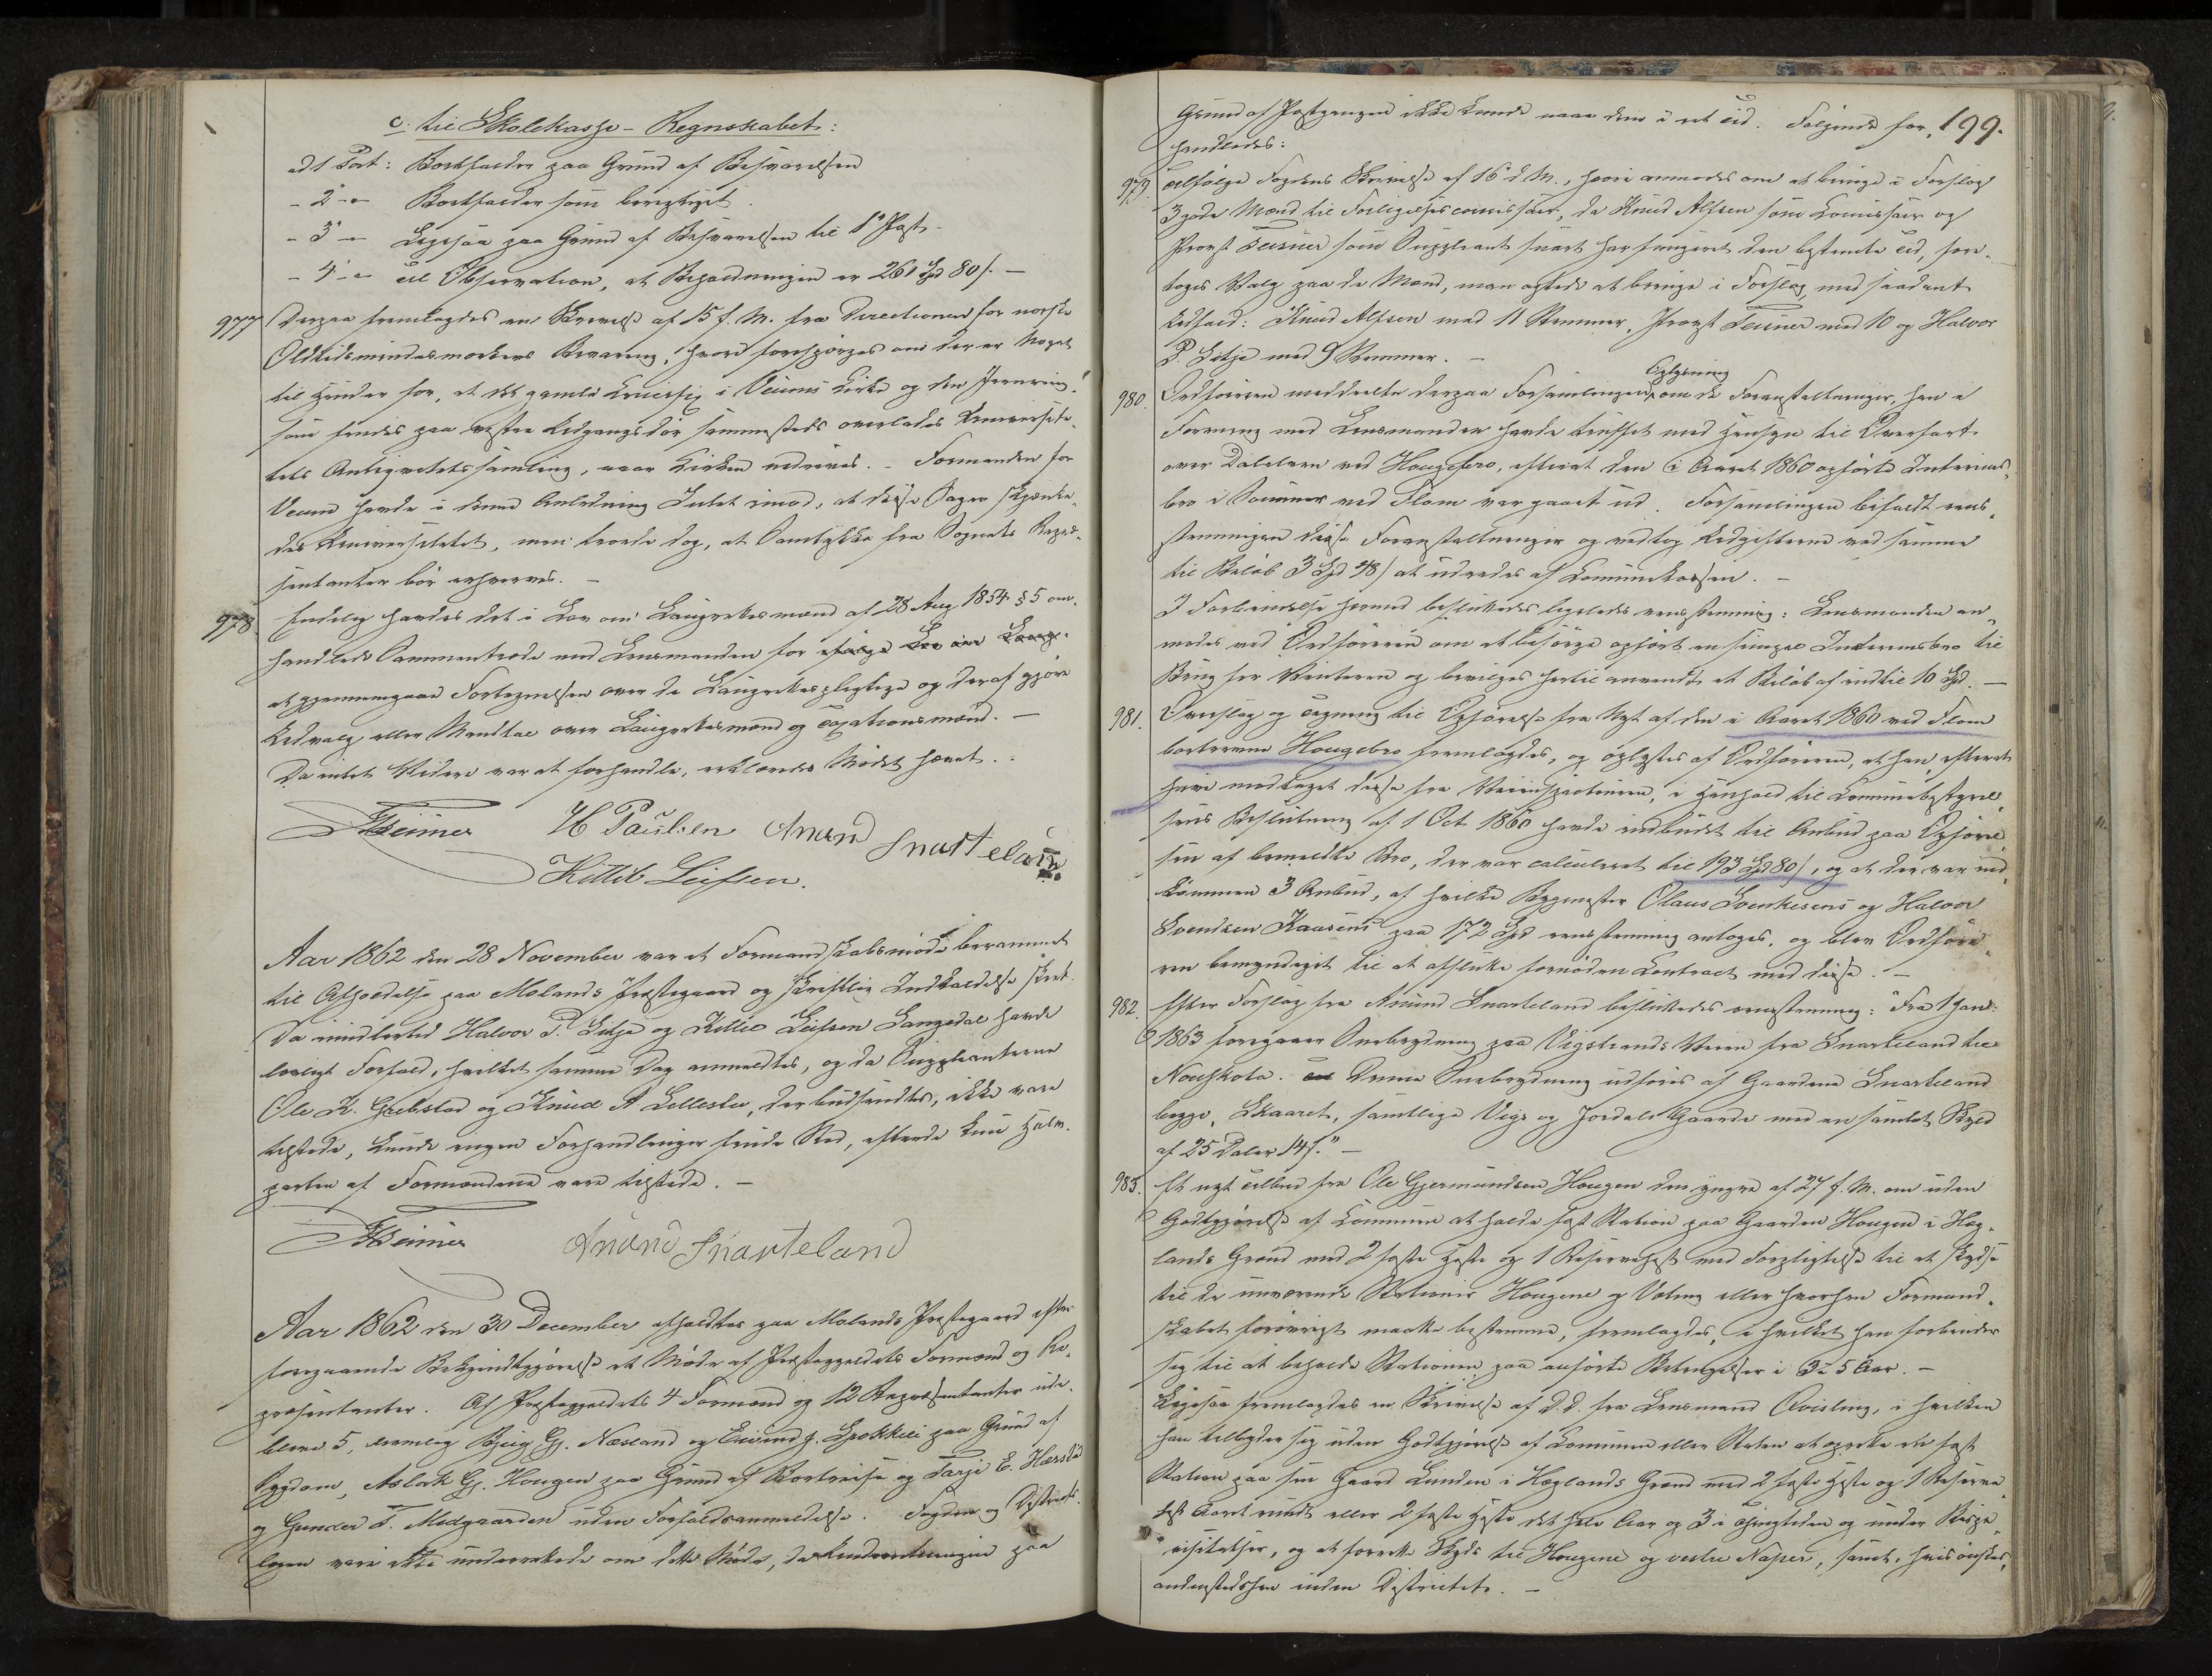 c. til Skolekasse-Regnskabet:
ad 1 Post: Bortfalder paa Grund af Besvarelsen
- 2 -"- Bortfalder som berigtiget.
- 3 -"- Ligesaa paa Grund af Besvarelsen til 1e Post.
- 4 -"- Til Observation, at Beholdningen er 261 Spd 80 s. —
977 Derpaa fremlagdes en Skrivelse af 15 f. M. fra Directionen for norske
Oldtidsmindesmerkers Bevaring, hvori forespørges om der er Noget
til Hinder for, at det gamle Crucifix i Veums Kirke og den Jernring
som findes paa vestre Udgangsdør sammesteds overlades Universite-
tets Antiqvitetssamling, naar Kirken nedrives. - Formanden for
Veum havde i denne Anledning Intet imod, at disse Sager skjænke-
des Universitetet, men troede dog, at Samtykke fra Sognets Repræ-
sentanter bør erhverves. —
978. Endelig havdes det i Lov om Laugrettesmænd af 28 Aug. 1854 § 5 om-
handlede Sammentræde med Lensmanden for ifølge Lov om Laug-
at gjennemgaae Fortegnelsen over de Laugrettespligtige og deraf gjøre
Udvalg eller Mandtal over Laugrettesmænd og Taxationsmænd. —
Da intet Videre var at forhandle, erklæredes Mødet hævet. -
H Paulsen Anund Snarteland
Kittil Leifsen.
Aar 1862 den 28 November var et Formandskabsmøde berammet
til Afholdelse paa Molands Præstegaard og skriftlig Indkaldelse skeet.
Da imidlertid Halvor P. Litje og Kittil Leifsen Langedal havde
lovligt Forfald, hvilket samme Dag anmeldtes, og da Suppleanterne
Ole K. Grebstad og Knud A Lilleslev, der budsendtes, ikke vare
tilstede, kunde ingen Forhandlinger finde Sted, efterdi kun Halv-
parten af Formændene vare tilstede. —
Anund Snarteland
Aar 1862 den 30 December afholdtes paa Molands Præstegaard efter
foregaaende Bekjendtgjørelse et Møde af Præstegjeldets Formænd og Re-
præsentanter. Af Præstegjeldets 4 Formænd og 12 Repræsentanter ude-
bleve 5, nemlig Gj. Næsland og Eivind J. paa Grund af
Sygdom, Aslak Gj. Hougen paa Grund af Bortreise og Tarje E.
og Gunder T. Midgaarden uden Forfaldsanmeldelse. Fogden og Districts-
lægen vare ikke underrettede om dette Møde, da Underretningen paa
Grund af Postgangen ikke kunde naae dem i ret Tid. Følgende for- 199.
handledes:
979. Ifølge Fogdens Skrivelse af 16 d. M., hvori anmodes om at bringe i Forslag
3 gode Mænd til Forligelsescomissair, da Knud Alfsen som Comissair og
Provst som Suppleant snart har fungeret den bestemte Tid, fore-
toges Valg paa de Mænd, man agtede at bringe i Forslag med saadant
Udfald: Knud Alfsen med 11 Stemmer, Provst med 10 og Halvor
P. Litje med 9 Stemmer. —
Oplysning
980. Ordføreren meddeelte derpaa Forsamlingen om de Foranstaltninger, han i
Forening med Lensmanden havde truffet med Hensyn til Overfart
over Dalelven ved Hougebro, efterat den i Aaret 1860 opførte Interims-
bro i Sommer ved Flom var gaaet ud. Forsamlingen bifaldt eens-
stemmigen disse Foranstaltninger og vedtog Udgifterne ved samme
til Beløb 3 Spd 48 s at udredes af Communekassen. —
I Forbindelse hermed besluttedes ligeledes eensstemmig: Lensmanden an-
modes ved Ordføreren om at besørge opført en simpel Interimsbro til
Brug for Vinteren og bevilges hertil anvendt et Beløb af indtil 10 Spd. —
981. Overslag og Tegning til Opførelse fra Nyt af den i Aaret 1860 ved Flom
borttagne Hougebro fremlagdes, og oplystes af Ordføreren, at han, efterat
have modtaget disse fra Veiinspecteuren, i Henhold til Communebestyrel-
sens Beslutning af 1 Oct 1860 havde indbudet til Anbud paa Opførel-
sen af bemeldte Bro, der var calculeret til 193 Spd 80 s, og at der var ind-
kommen 3 Anbud, af hvilke Bygmester Olaus Svenkesens og Halvor
Svendsen Kaasens paa 172 Spd eensstemmig antoges, og blev Ordføre-
ren bemyndiget til at afslutte fornøden Contract med disse. —
982. Efter Forslag fra Anund Snarteland besluttedes eensstemmig: "Fra 1 Jan:
1863 foregaaer Snebrydning paa Vigstrands Veien fra Snarteland til
Denne Snebrydning udføres af Gaardene Snarteland
begge, Skaaret, samtlige Vigs og Jordals Gaarde med en samlet Skyld
af 25 Daler 14 s." —
983. Et nyt Tilbud fra Ole Gjermundsen Hougen den yngre af 27 f. M. om uden
Godtgjørelse af Communen at holde fast Station paa Gaarden Hougen i Høg-
lands Grænd med 2 faste Heste og 1 Reservehest med Forpligtelse til at skydse
til de nuværende Stationer Hougene og Veting eller hvorhen Formand-
skabet forøvrigt maatte bestemme, fremlagdes, i hvilket han forbinder
sig til at beholde Stationen paa anførte Betingelser i 3 à 5 Aar. —
Ligesaa fremlagdes en Skrivelse af D. D. fra Lensmand Qvisling, i hvilken
han tilbyder sig uden Godtgjørelse af Communen eller Staten at oprette en fast
Station paa sin Gaard Lunden i Høglands Grænd med 2 faste Heste og 1 Reserve-
hest Aaret rundt eller 2 faste Heste det hele Aar og 3 i Thingtiden og under Bispe-
visitatser, og at forrette Skyds til Hougene og vestre Naper, samt, hvis ønskes,
andenstedshen inden Districtet. —